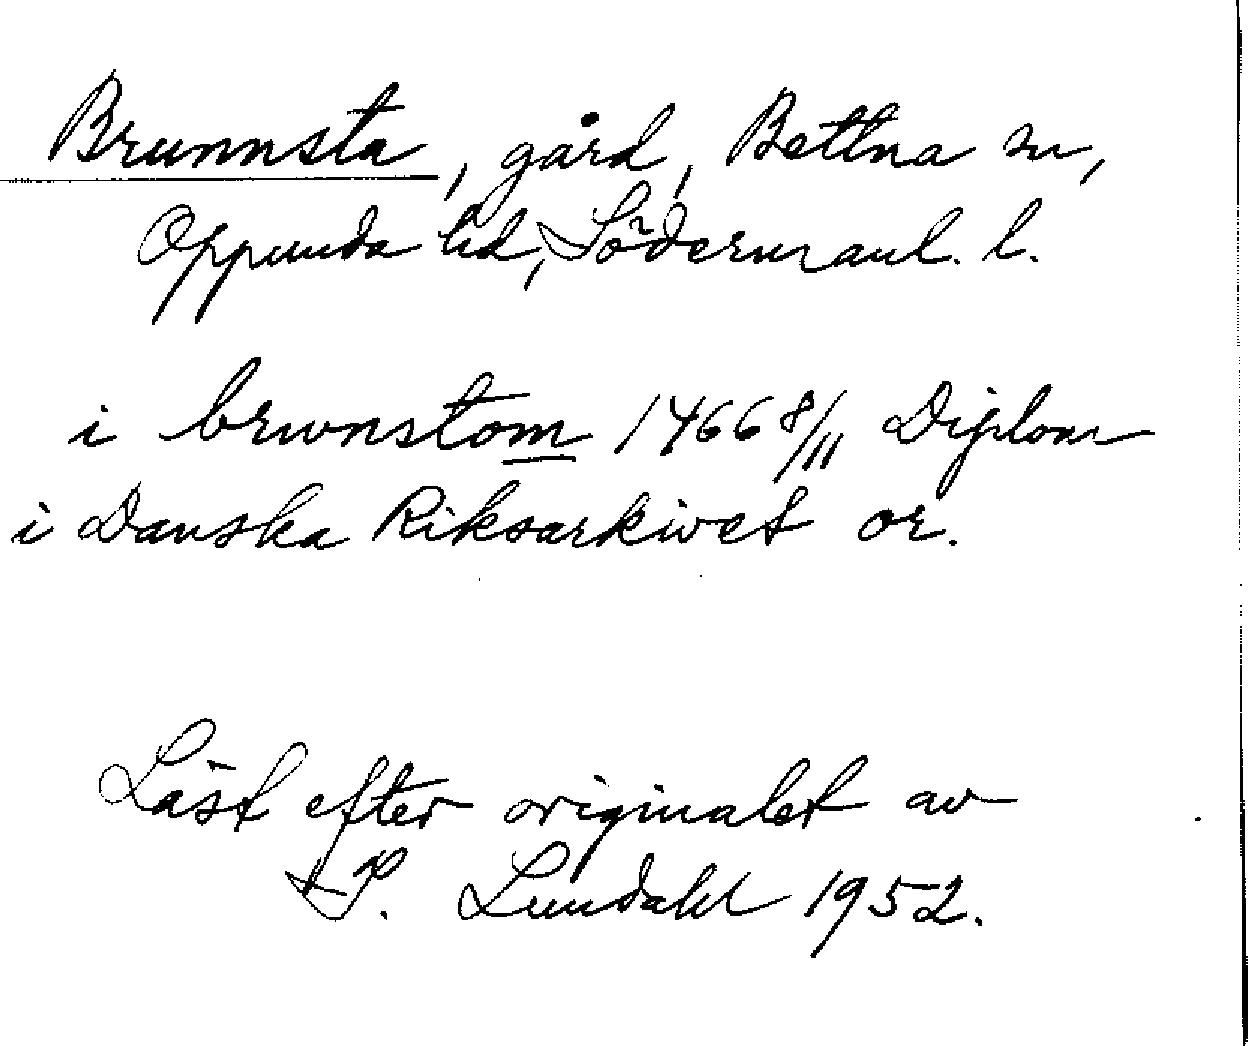 Brunnsta, gård, Bettna sn,
Oppunda hd, Södermanl. l.
i brwnstom 1466 8/11 Diplom
i Danska Riksarkivet or.
Läst efter originalet av
I. Lundahl 1952.